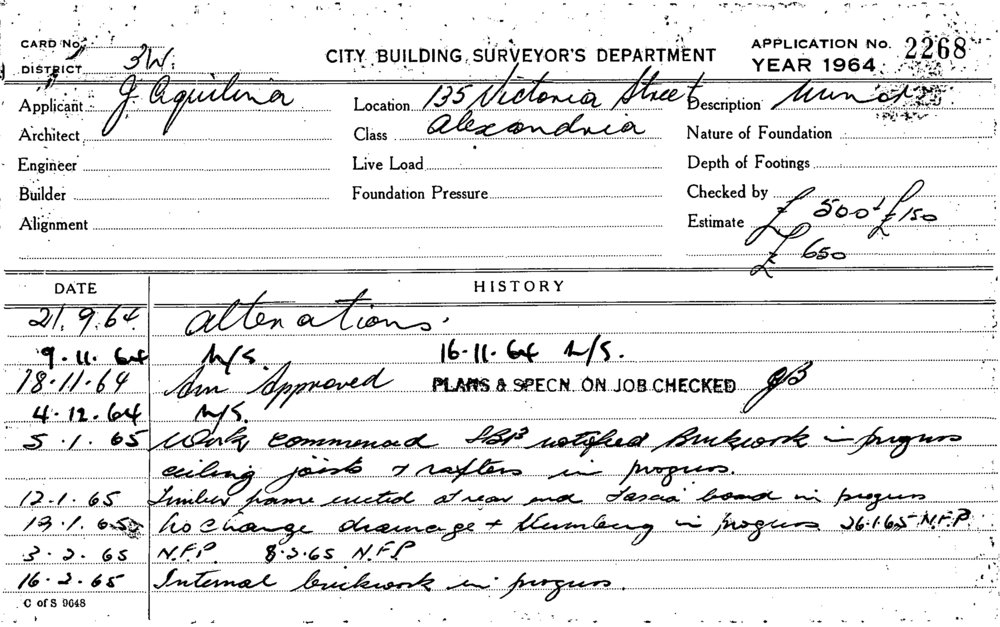 CARD No.
DISTRICT 3W.
CITY BUILDING SURVEYOR'S DEPARTMENT
APPLICATION No. 2268
YEAR 1964
Applicant J. Aquilina
Location 135 Victoria Street
Description Minor
Architect
Class Alexandria
Nature of Foundation
Engineer
Live Load
Depth of Footings
Builder
Foundation Pressure
Checked by
Alignment
Estimate £ 500 £150
£ 650
DATE HISTORY
21.9.64 Alterations.
9.11.64 N/S. 16.11.64 N/S.
18.11.64 Approved PLANS & SPECN. ON JOB CHECKED
4.12.64 N/S.
5.1.65 Work commenced notified Brickwork in progress
ceiling joists & rafters in progress.
12.1.65 Timber frame erected at rear and fascia board in progress
19.1.65 No change drainage + Plumbing in progress 26.1.65 N.F.P.
3.2.65 N.F.P. 8.2.65 N.F.P
16.2.65 Internal brickwork in progress.
C of S 9648